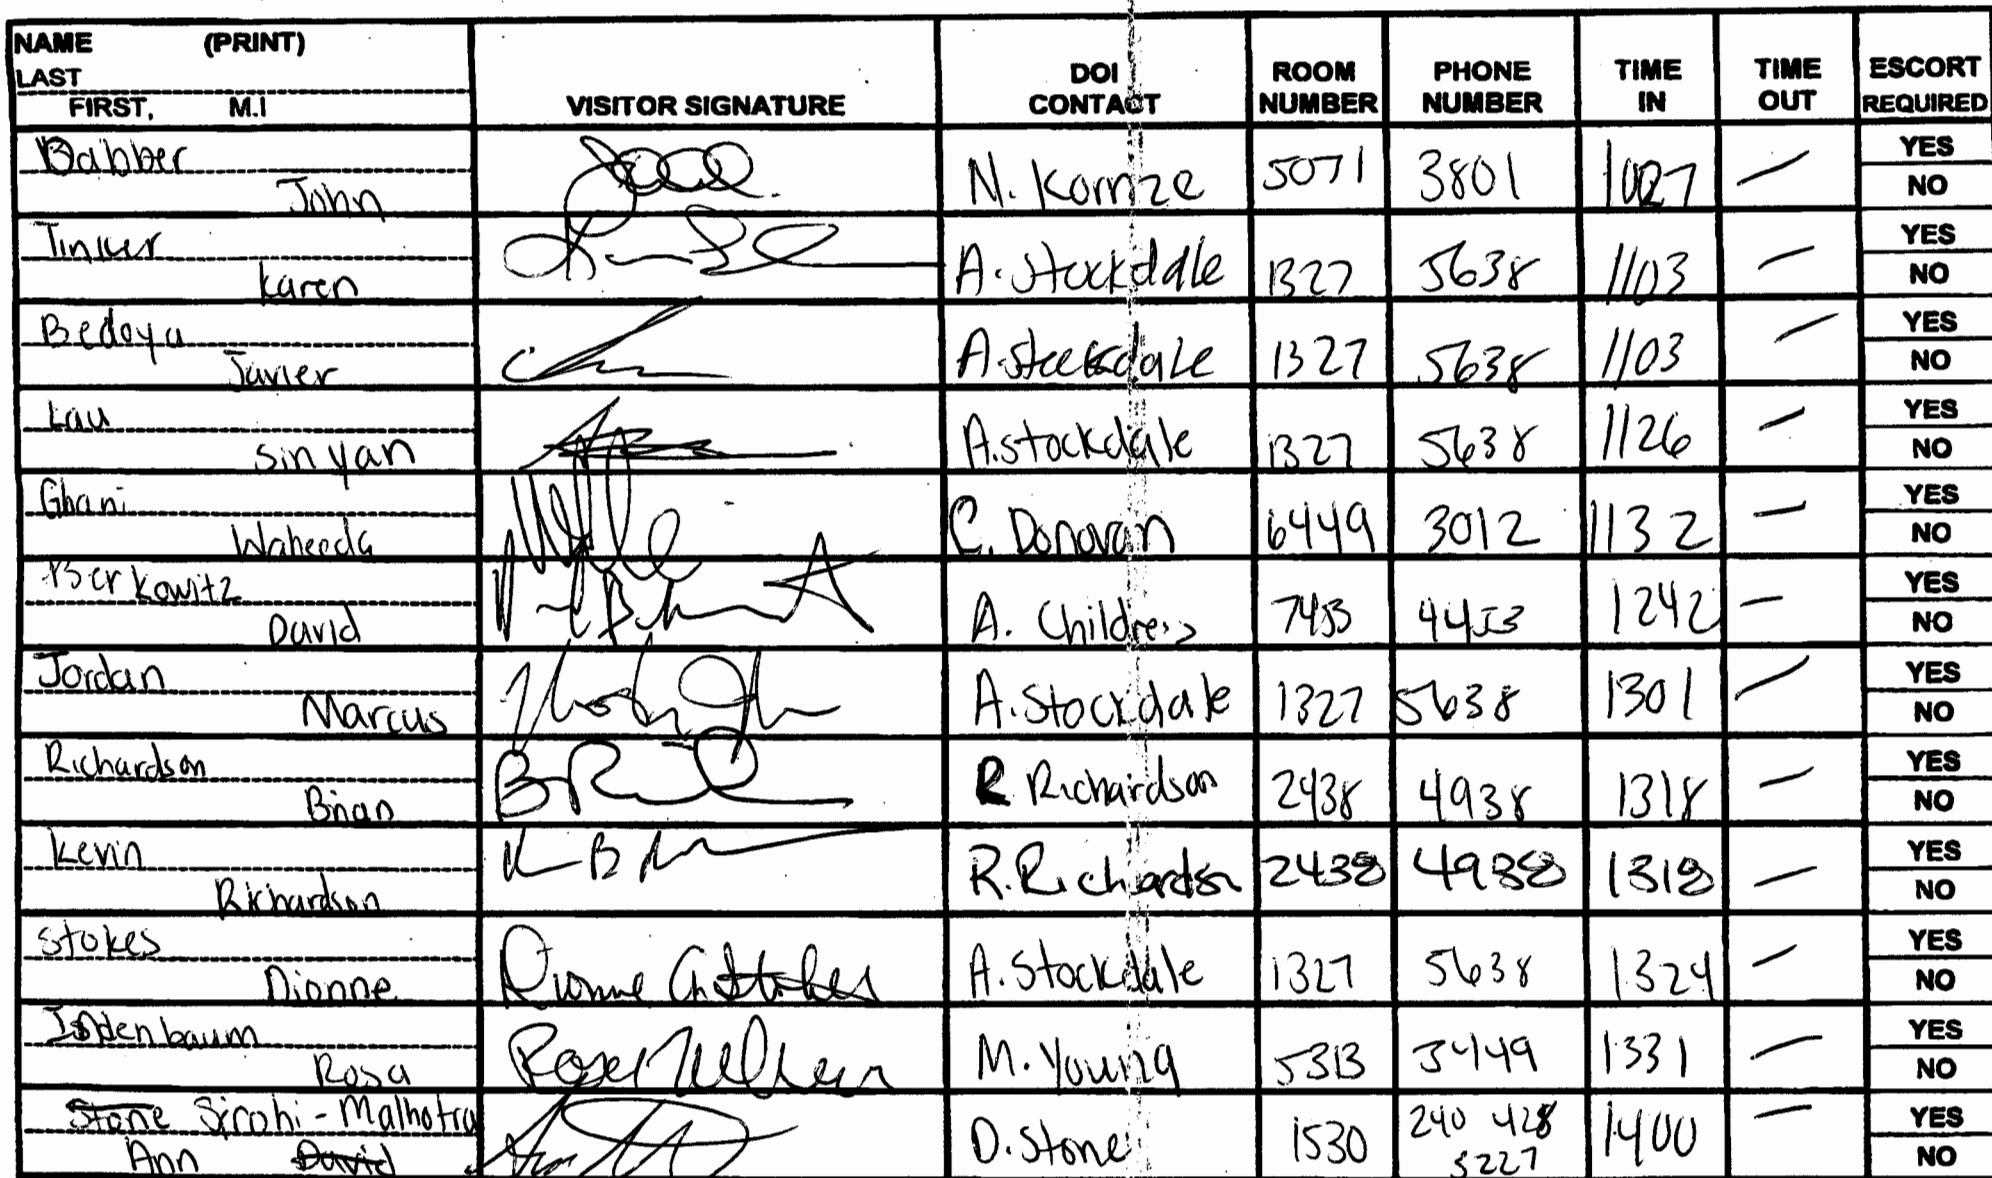 NAME (PRINT)
LAST
FIRST, M.I
VISITOR SIGNATURE
DOI CONTACT
ROOM NUMBER
PHONE NUMBER
TIME IN
TIME OUT
ESCORT REQUIRED
Babber
John
N. Kornze 5071 3801 1027 — YES NO
Tinker
Karen
A. Stockdale 1327 5638 1103 — YES NO
Bedoya
Javier
A. Stockdale 1327 5638 1103 — YES NO
Lau
Sin yan
A. Stockdale 1327 5638 1126 — YES NO
Ghani
Waheeda
C. Donovan 6449 3012 1132 — YES NO
Berkowitz
David
A. Childress 7453 4453 1242 — YES NO
Jordan
Marcus
A. Stockdale 1327 5638 1301 — YES NO
Richardson
Brian
R Richardson 2438 4938 1318 — YES NO
Kevin
Richardson
R. Richardson 2438 4938 1318 — YES NO
Stokes
Dionne
Dionne Stokes
A. Stockdale 1327 5638 1324 — YES NO
baum
Rosa
M. Young 5313 3449 1331 — YES NO
Stone Sirohi-Malhotra
Ann David
D. Stone 1530 240 428 5227 1400 — YES NO